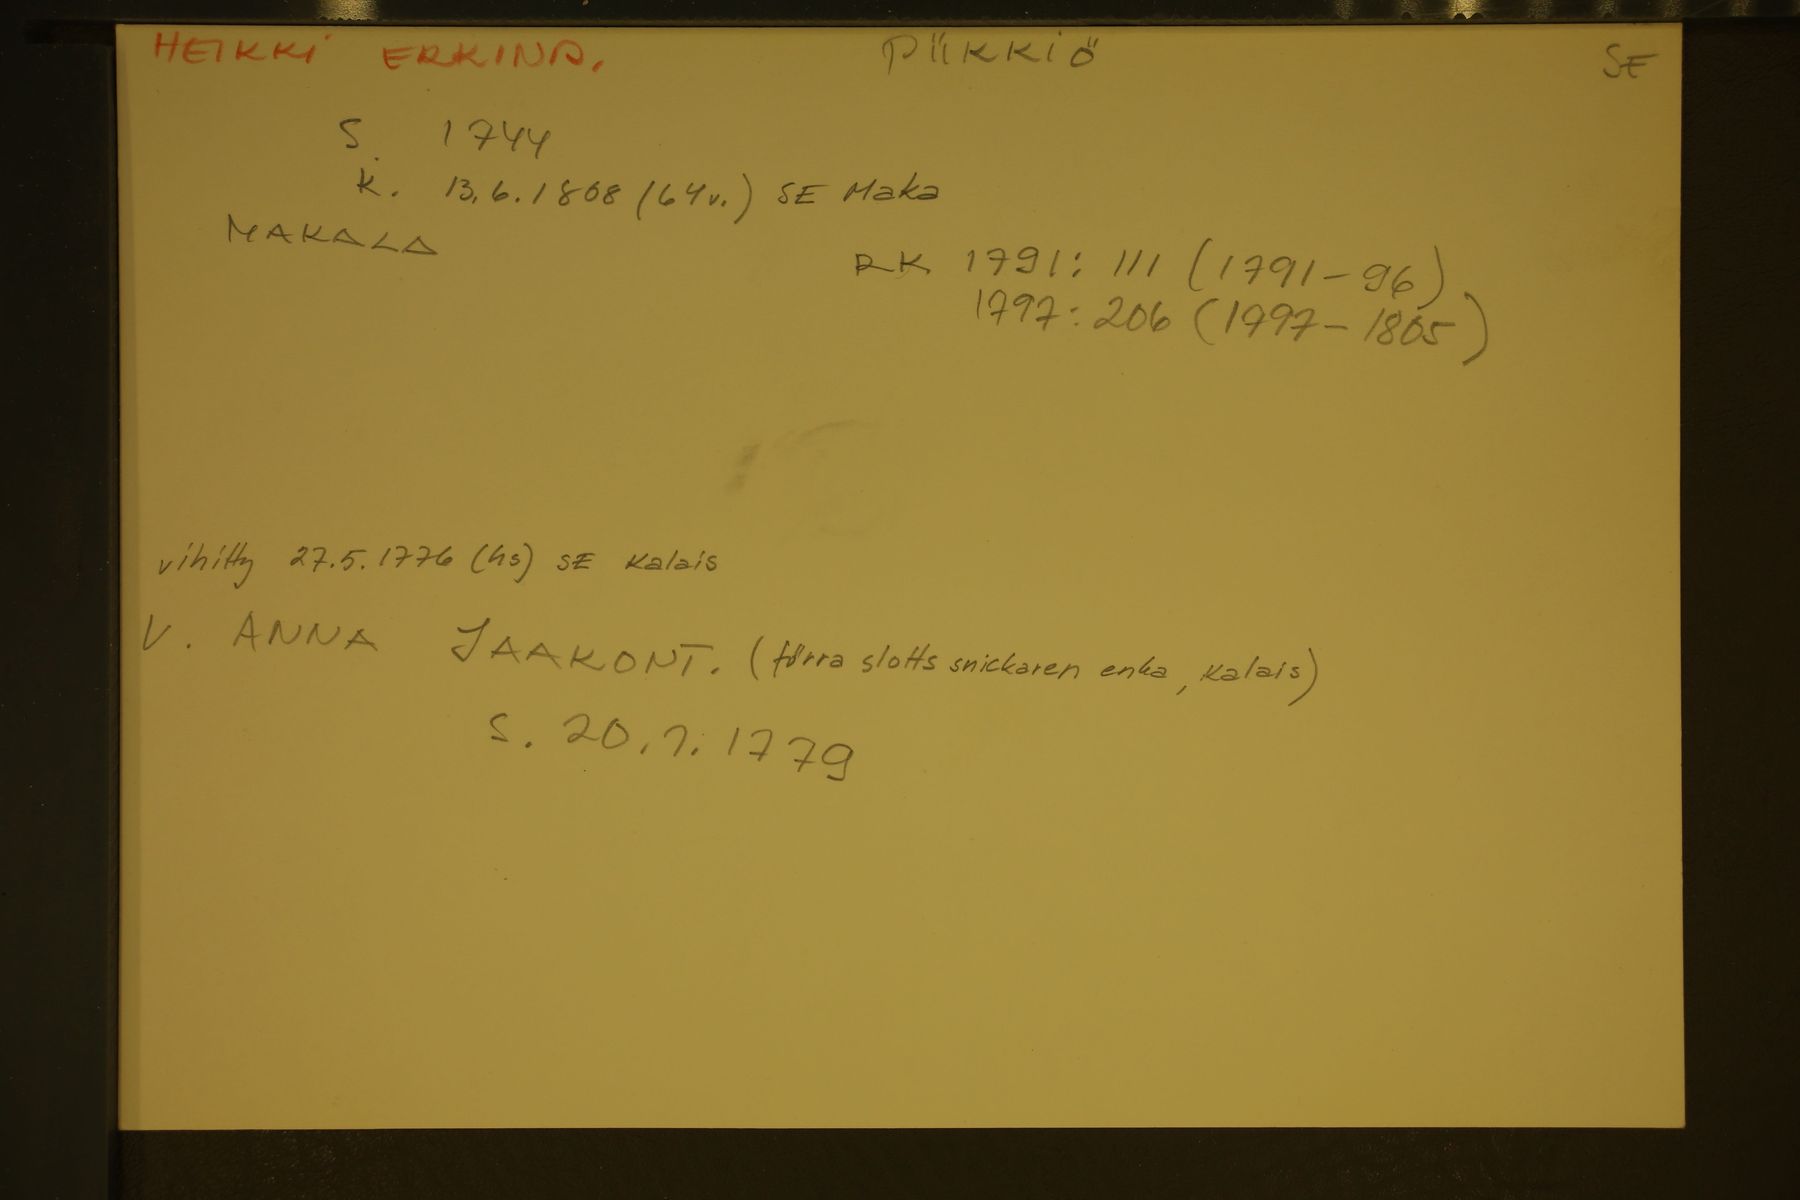 HEIKKI ERKINP. PIIKKIÖ SE
S. 1744
K. 13.6.1808 (64v.) SE Maka
MAKALA
RK 1791: 111 (1791-96)
1797: 206 (1797-1805)
vihitty 27.5.1776 (hs) SE Kalais
V. ANNA JAAKONT. (förra slotts snickaren enka, Kalais)
S. 20.7.1779